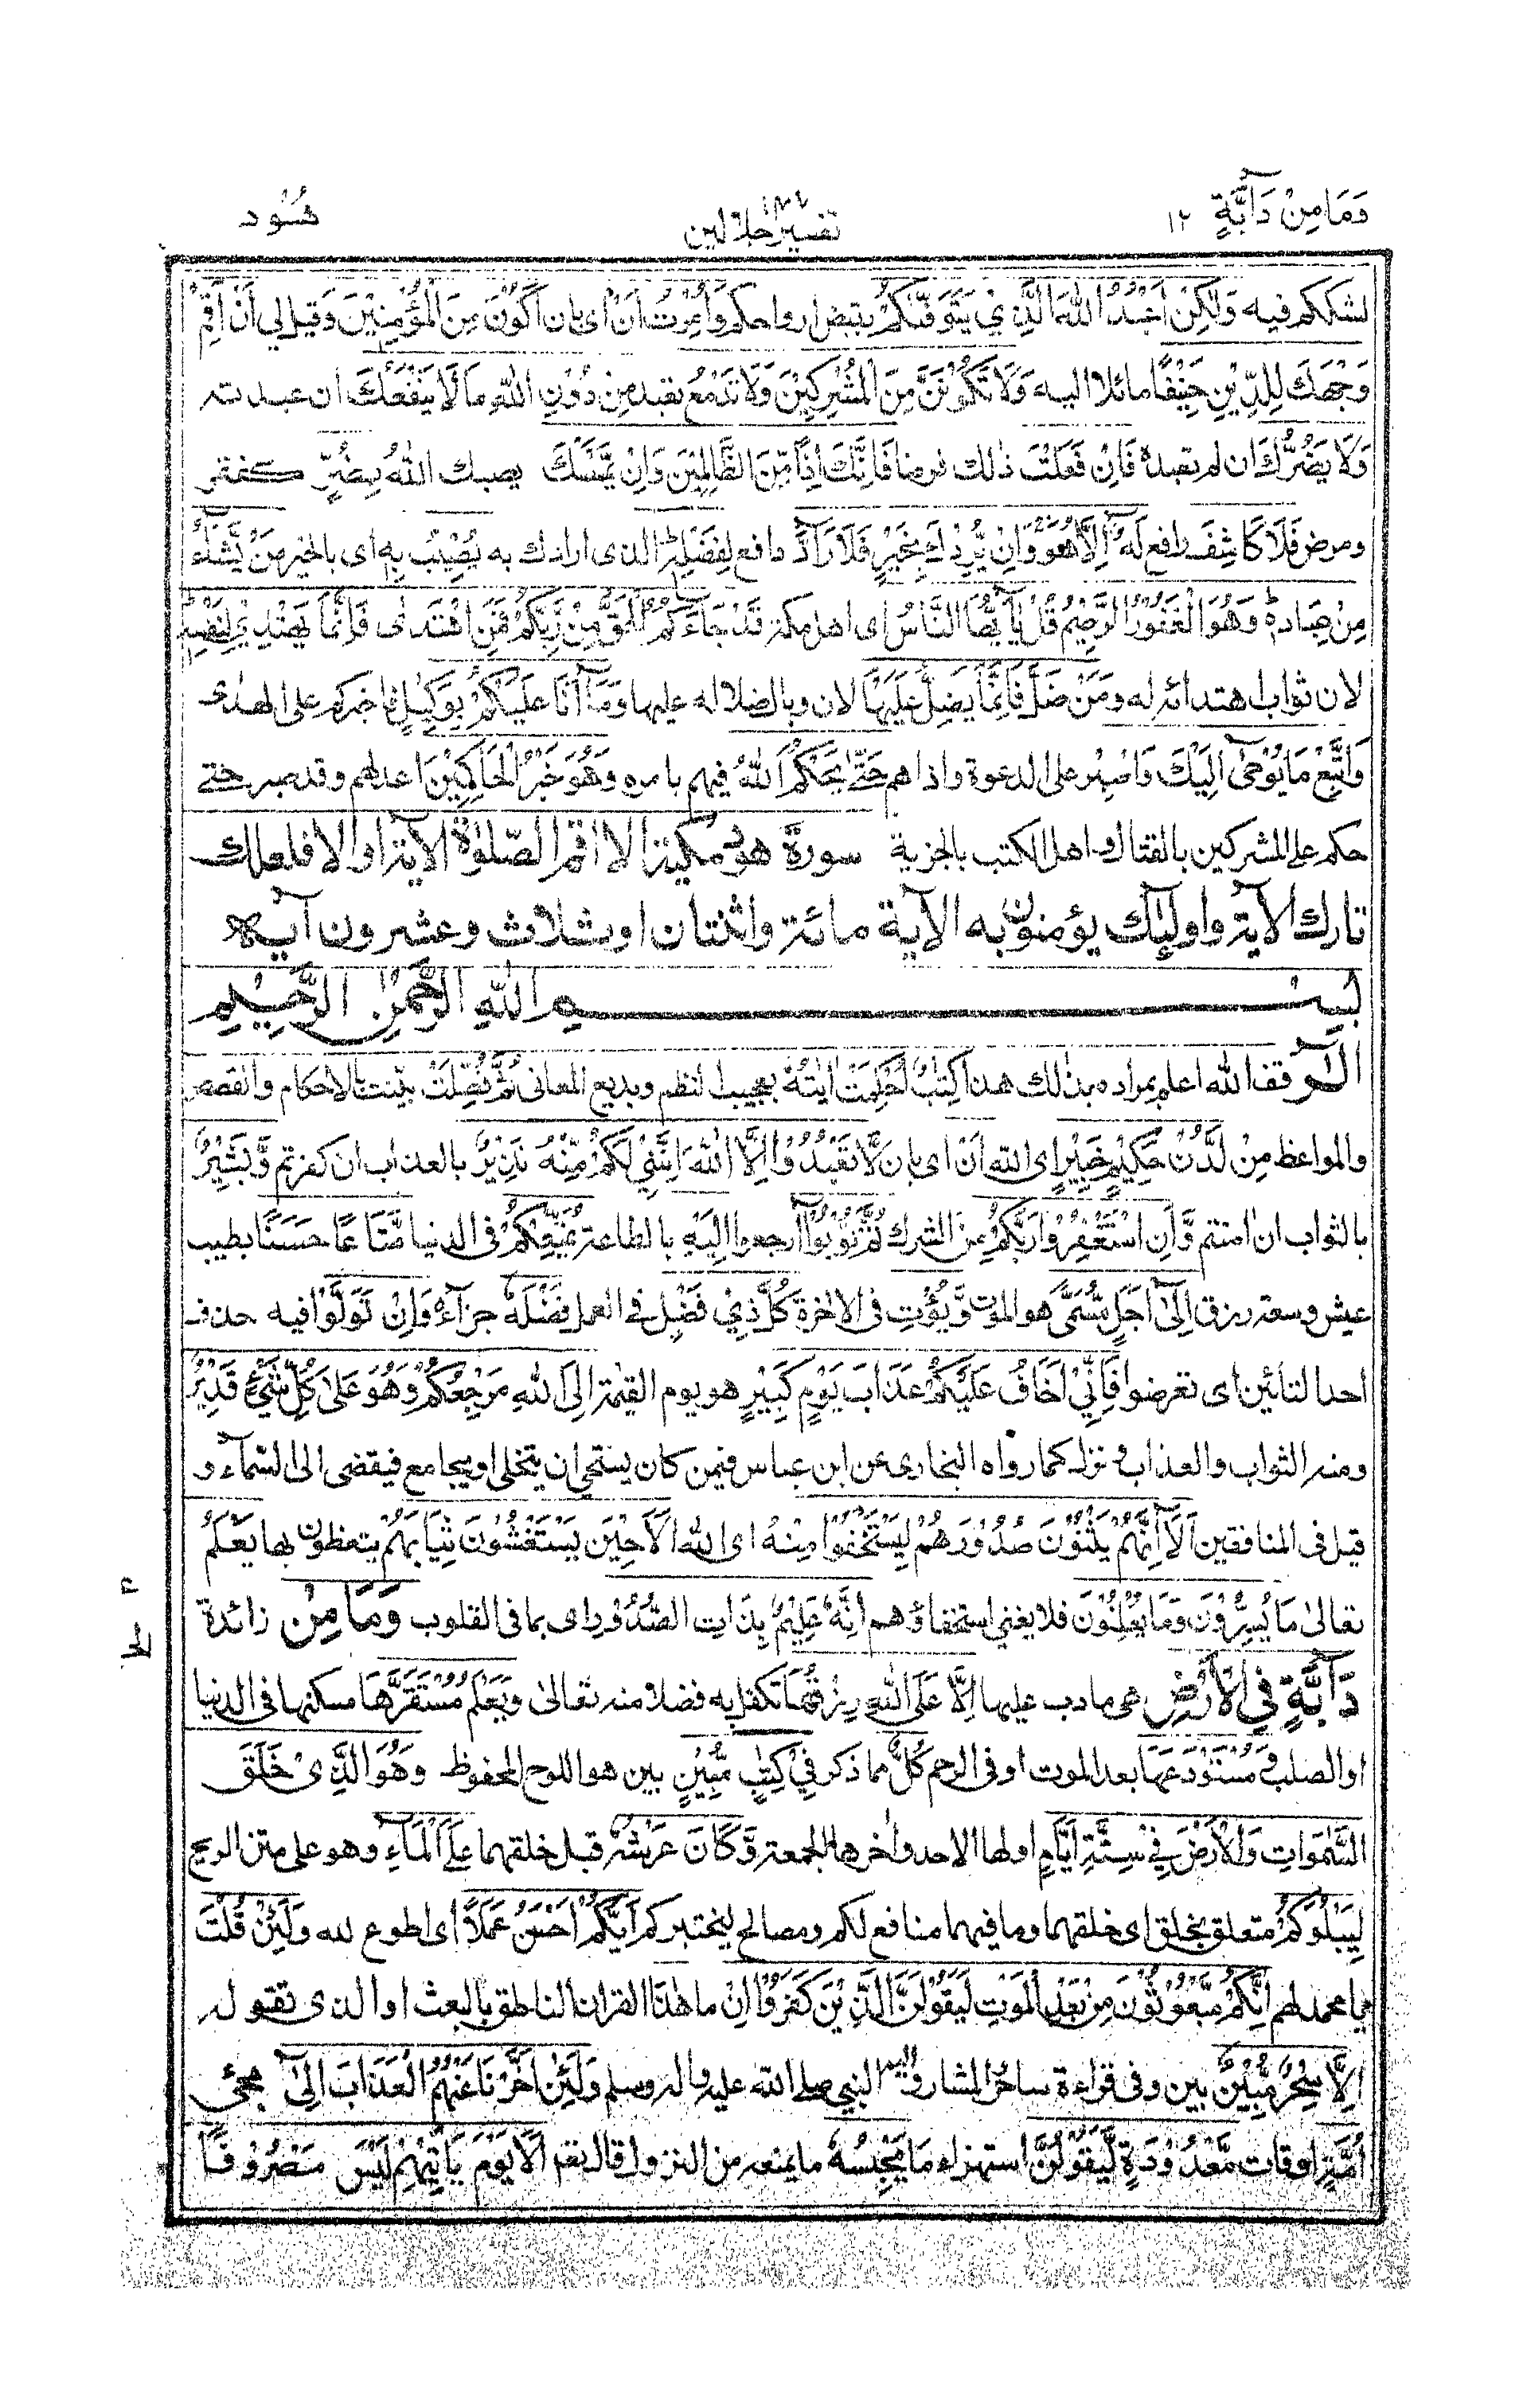 وَمَا مِنْ دَآبَّةٍ ١٢
١٨٤
تفسير جلالين
هُود
لشككم فيه وَلٰكِنْ اَعْبُدُ اللّٰهَ الَّذِيْ يَتَوَفّٰىكُمْ بقبض ارواحكم وَاُمِرْتُ اَنْ اى بان اَكُوْنَ مِنَ الْمُؤْمِنِيْنَ وَقيل لي اَنْ اَقِمْ
وَجْهَكَ لِلدِّيْنِ حَنِيْفًا مائلا اليه وَلَا تَكُوْنَنَّ مِنَ الْمُشْرِكِيْنَ وَلَا تَدْعُ تعبد مِنْ دُوْنِ اللّٰهِ مَا لَا يَنْفَعُكَ ان عبدته
وَلَا يَضُرُّكَ ان لم تعبده فَاِنْ فَعَلْتَ ذلك فرضا فَاِنَّكَ اِذًا مِّنَ الظَّالِمِيْنَ وَاِنْ يَّمْسَسْكَ يصبك اللّٰهُ بِضُرٍّ كفقر
ومرض فَلَا كَاشِفَ رافع لَهٗ اِلَّا هُوَ وَاِنْ يُّرِدْكَ بِخَيْرٍ فَلَا رَآدَّ دافع لِفَضْلِهٖ الذى ارادك به يُصِيْبُ بِهٖ اى بالخير مَنْ يَّشَآءُ
مِنْ عِبَادِهٖ وَهُوَ الْغَفُوْرُ الرَّحِيْمُ قُلْ يٰٓاَيُّهَا النَّاسُ اى اهل مكة قَدْ جَآءَكُمُ الْحَقُّ مِنْ رَّبِّكُمْ فَمَنِ اهْتَدٰى فَاِنَّمَا يَهْتَدِيْ لِنَفْسِهٖ
لان ثواب اهتدائه له وَمَنْ ضَلَّ فَاِنَّمَا يَضِلُّ عَلَيْهَا لان وبال ضلاله عليها وَمَآ اَنَا عَلَيْكُمْ بِوَكِيْلٍ فاجبركم على الهدى
وَاتَّبِعْ مَا يُوْحٰٓى اِلَيْكَ وَاصْبِرْ على الدعوة واذاهم حَتّٰى يَحْكُمَ اللّٰهُ فيهم بامره وَهُوَ خَيْرُ الْحَاكِمِيْنَ اعدلهم وقد صبر حتے
حكم على المشركين بالقتال واهل الكتب بالجزية سورة هود مكية الا اقم الصلوة الاية او الا فلعلك
تارك الآية واولٰٓئك يؤمنون به الآية مائة واثنتان او ثلاث وعشرون آية
بِسْمِ اللّٰهِ الرَّحْمٰنِ الرَّحِيْمِ
الٓرٰ قف الله اعلم بمراده بذلك هذا كِتٰبٌ اُحْكِمَتْ اٰيٰتُهٗ بعجيب النظم وبديع المعانى ثُمَّ فُصِّلَتْ بينت بالاحكام والقصص
والمواعظ مِنْ لَّدُنْ حَكِيْمٍ خَبِيْرٍ اى الله اَنْ اى بان لَّا تَعْبُدُوْا اِلَّا اللّٰهَ اِنَّنِيْ لَكُمْ مِّنْهُ نَذِيْرٌ بالعذاب ان كفرتم وَّبَشِيْرٌ
بالثواب ان اٰمنتم وَّاَنِ اسْتَغْفِرُوْا رَبَّكُمْ من الشرك ثُمَّ تُوْبُوْٓا ارجعوا اِلَيْهِ بالطاعة يُمَتِّعْكُمْ فى الدنيا مَّتَاعًا حَسَنًا بطيب
عيش وسعة رزق اِلٰٓى اَجَلٍ مُّسَمًّى هو الموت وَّيُؤْتِ فى الاٰخرة كُلَّ ذِيْ فَضْلٍ فى العمل فَضْلَهٗ جزآءه وَاِنْ تَوَلَّوْا فيه حذف
احدا لتائين اى تعرضوا فَاِنِّيْ اَخَافُ عَلَيْكُمْ عَذَابَ يَوْمٍ كَبِيْرٍ هو يوم القيٰمة اِلَى اللّٰهِ مَرْجِعُكُمْ وَهُوَ عَلٰى كُلِّ شَيْءٍ قَدِيْرٌ
ومنه الثواب والعذاب ونزل كما رواه البخارى عن ابن عباس فيمن كان يستحى ان يتخلى او يجامع فيفضى الى السمآء و
قيل فى المنافقين اَلَآ اِنَّهُمْ يَثْنُوْنَ صُدُوْرَهُمْ لِيَسْتَخْفُوْا مِنْهُ اى الله اَلَا حِيْنَ يَسْتَغْشُوْنَ ثِيَابَهُمْ يتغطون بها يَعْلَمُ
تعالىٰ مَا يُسِرُّوْنَ وَمَا يُعْلِنُوْنَ فلا يغنى استخفاؤهم اِنَّهٗ عَلِيْمٌ بِذَاتِ الصُّدُوْرِ اى بما فى القلوب وَمَا مِنْ زائدة
دَآبَّةٍ فِي الْاَرْضِ هى ما دب عليها اِلَّا عَلَى اللّٰهِ رِزْقُهَا تكفل به فضلا منه تعالىٰ وَيَعْلَمُ مُسْتَقَرَّهَا مسكنها فى الدنيا
او الصلب وَمُسْتَوْدَعَهَا بعد الموت او فى الرحم كُلٌّ مما ذكر فِيْ كِتٰبٍ مُّبِيْنٍ بين هو اللوح المحفوظ وَهُوَ الَّذِيْ خَلَقَ
السَّمٰوَاتِ وَالْاَرْضَ فِيْ سِتَّةِ اَيَّامٍ اولها الاحد واٰخرها الجمعة وَّكَانَ عَرْشُهٗ قبل خلقهما عَلَى الْمَآءِ وهو على متن الريح
لِيَبْلُوَكُمْ متعلق بخلق اى خلقهما وما فيهما منافع لكم ومصالح ليختبركم اَيُّكُمْ اَحْسَنُ عَمَلًا اى اطوع لله وَلَئِنْ قُلْتَ
يا محمد لهم اِنَّكُمْ مَّبْعُوْثُوْنَ مِنْ بَعْدِ الْمَوْتِ لَيَقُوْلَنَّ الَّذِيْنَ كَفَرُوْٓا اِنْ ما هٰذَا القراٰن الناطق بالبعث او الذى تقوله
اِلَّا سِحْرٌ مُّبِيْنٌ بين وفى قراءة ساحر والمشار اليه النبى صلى الله عليه واٰله وسلم وَلَئِنْ اَخَّرْنَا عَنْهُمُ الْعَذَابَ اِلٰٓى مجئ
اُمَّةٍ اوقات مَّعْدُوْدَةٍ لَّيَقُوْلُنَّ استهزاء مَا يَحْبِسُهٗ ما يمنعه من النزول قال تعالى اَلَا يَوْمَ يَاْتِيْهِمْ لَيْسَ مَصْرُوْفًا